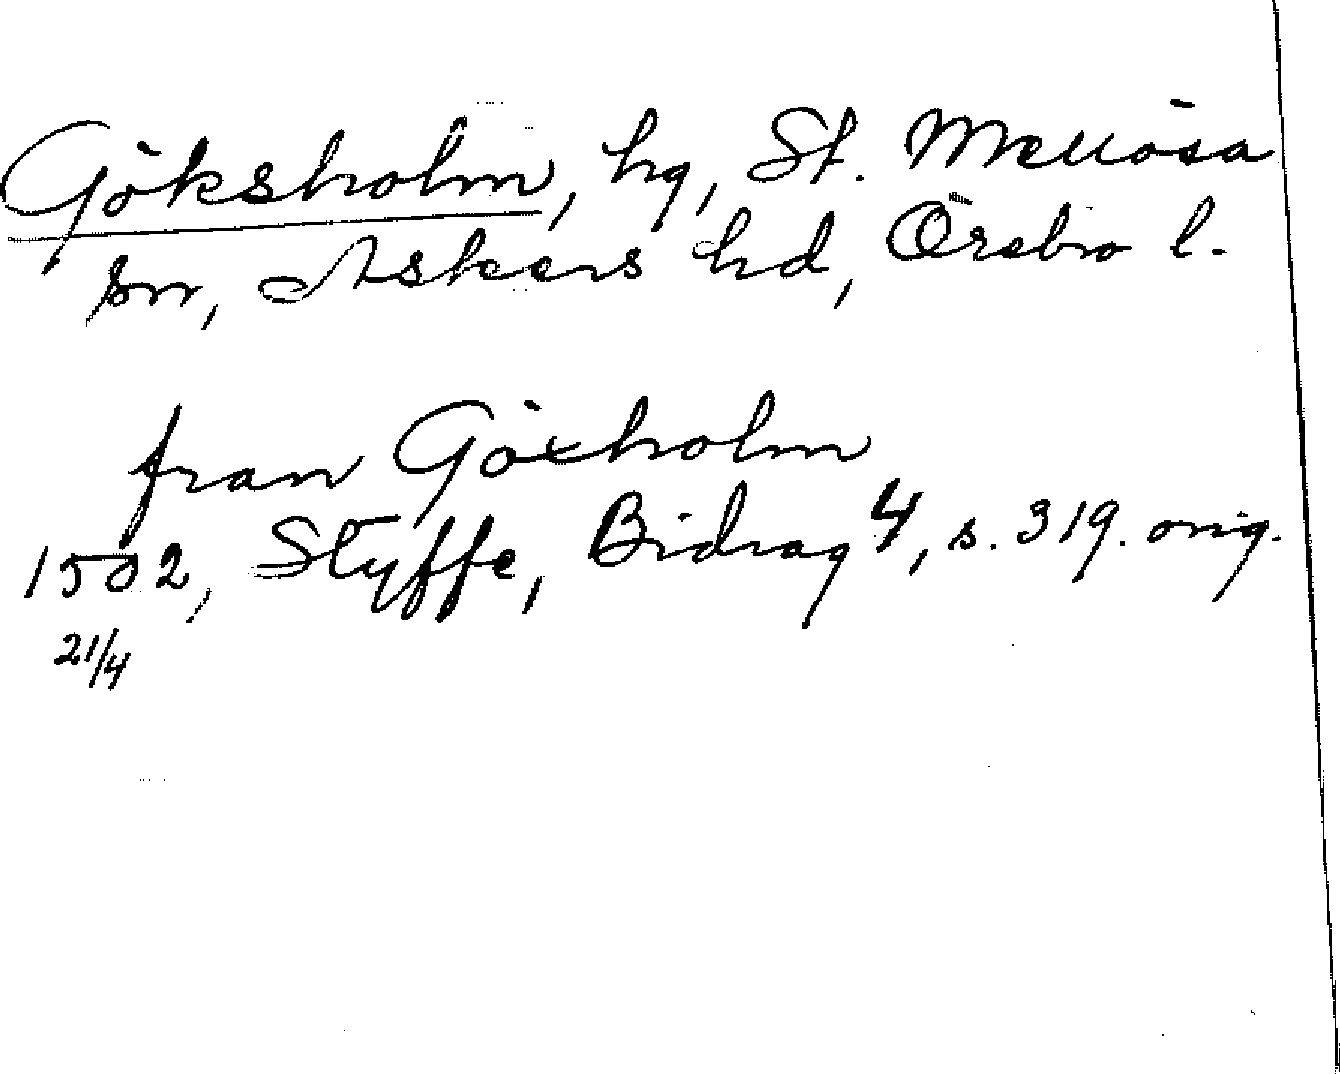 Göksholm, hg, St. Mellösa
sn, Askers hd, Örebro l.
fran Göxholm
1502, Styffe, Bidrag 4, s. 319. orig.
21/4